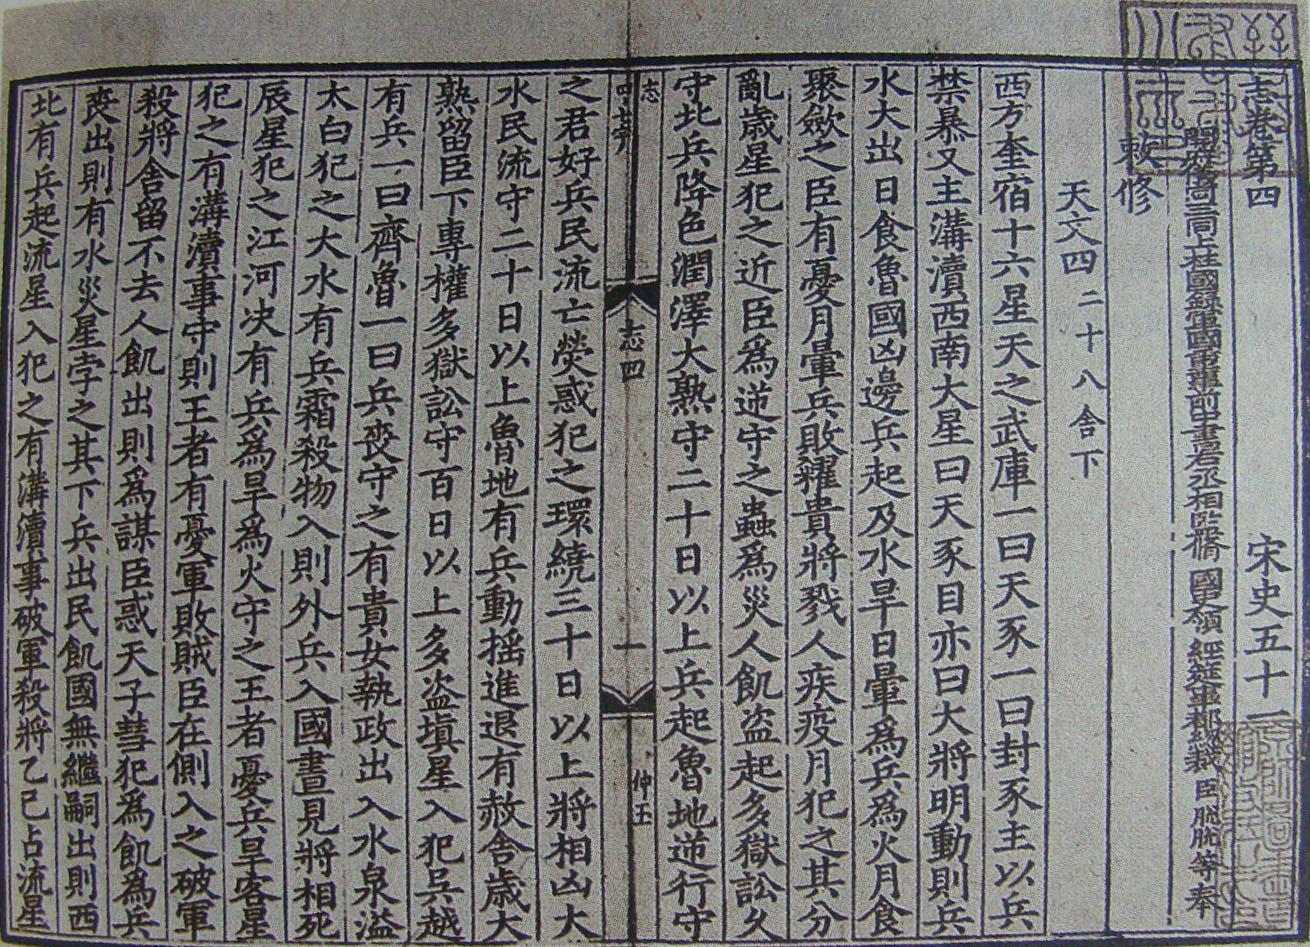 志卷第四 宋史五十一
開府儀同三司上柱國錄軍國重事前中書右丞相監脩國史領經筵事都總裁臣脫脫等奉
敕修
天文四 二十八舍下
西方奎宿十六星天之武庫一曰天豕一曰封豕主以兵
禁暴又主溝瀆西南大星曰天豕目亦曰大將明動則兵
水大出日食魯國凶邊兵起及水旱日暈為兵為火月食
聚斂之臣有憂月暈兵敗糴貴將戮人疾疫月犯之其分
亂歲星犯之近臣為逆守之蟲為災人飢盗起多獄訟久
守北兵降色潤澤大熟守二十日以上兵起魯地逆行守
志四 一 仲玉
之君好兵民流亡熒惑犯之環繞三十日以上將相凶大
水民流守二十日以上魯地有兵動揺進退有赦舎歲大
熟留臣下專權多獄訟守百日以上多盗塡星入犯吳越
有兵一曰齊魯一曰兵喪守之有貴女執政出入水泉溢
太白犯之大水有兵霜殺物入則外兵入國晝見將相死
辰星犯之江河决有兵為旱為火守之王者憂兵旱客星
犯之有溝瀆事守則王者有憂軍敗賊臣在側入之破軍
殺將舍留不去人飢出則為謀臣惑天子彗犯為飢為兵
喪出則有水災星孛之其下兵出民飢國無繼嗣出則西
北有兵起流星入犯之有溝瀆事破軍殺將乙巳占流星